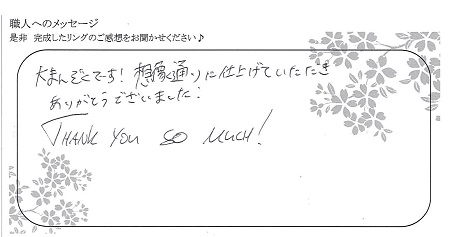 職人へのメッセージ
是非 完成したリングのご感想をお聞かせください♪
大まんぞくです! 想像通りに仕上げていただき
ありがとうございました!
THANK YOU SO MUCH!